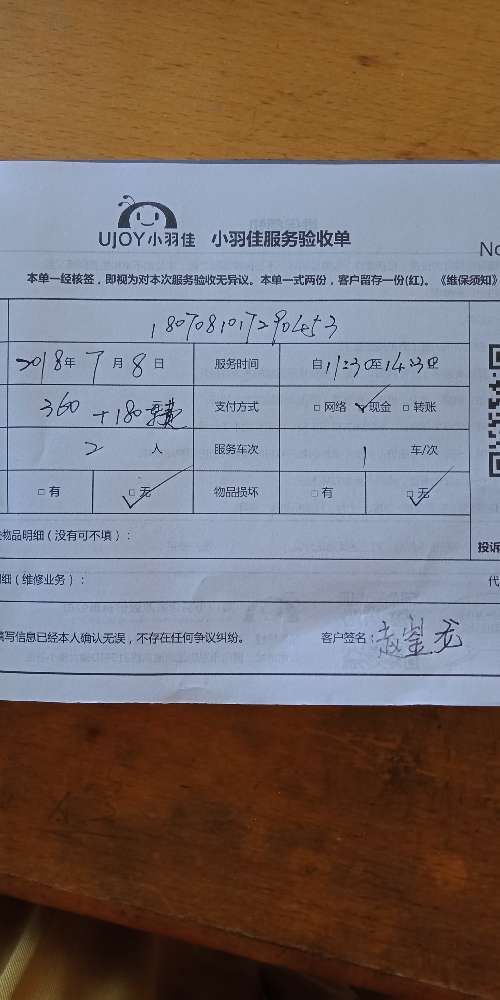 UJOY小羽佳 小羽佳服务验收单
No
本单一经核签，即视为对本次服务验收无异议。本单一式两份，客户留存一份(红)。《维保须知》
18070810172904553
2018年7月8日 服务时间 自11:30至14:30止
360+180 费 支付方式 □网络 ☑现金 □转账
2人 服务车次 1 车/次
□有 ☑无 物品损坏 □有 ☑无
物品明细（没有可不填）： 投诉
细（维修业务）： 代
填写信息已经本人确认无误，不存在任何争议纠纷。 客户签名：